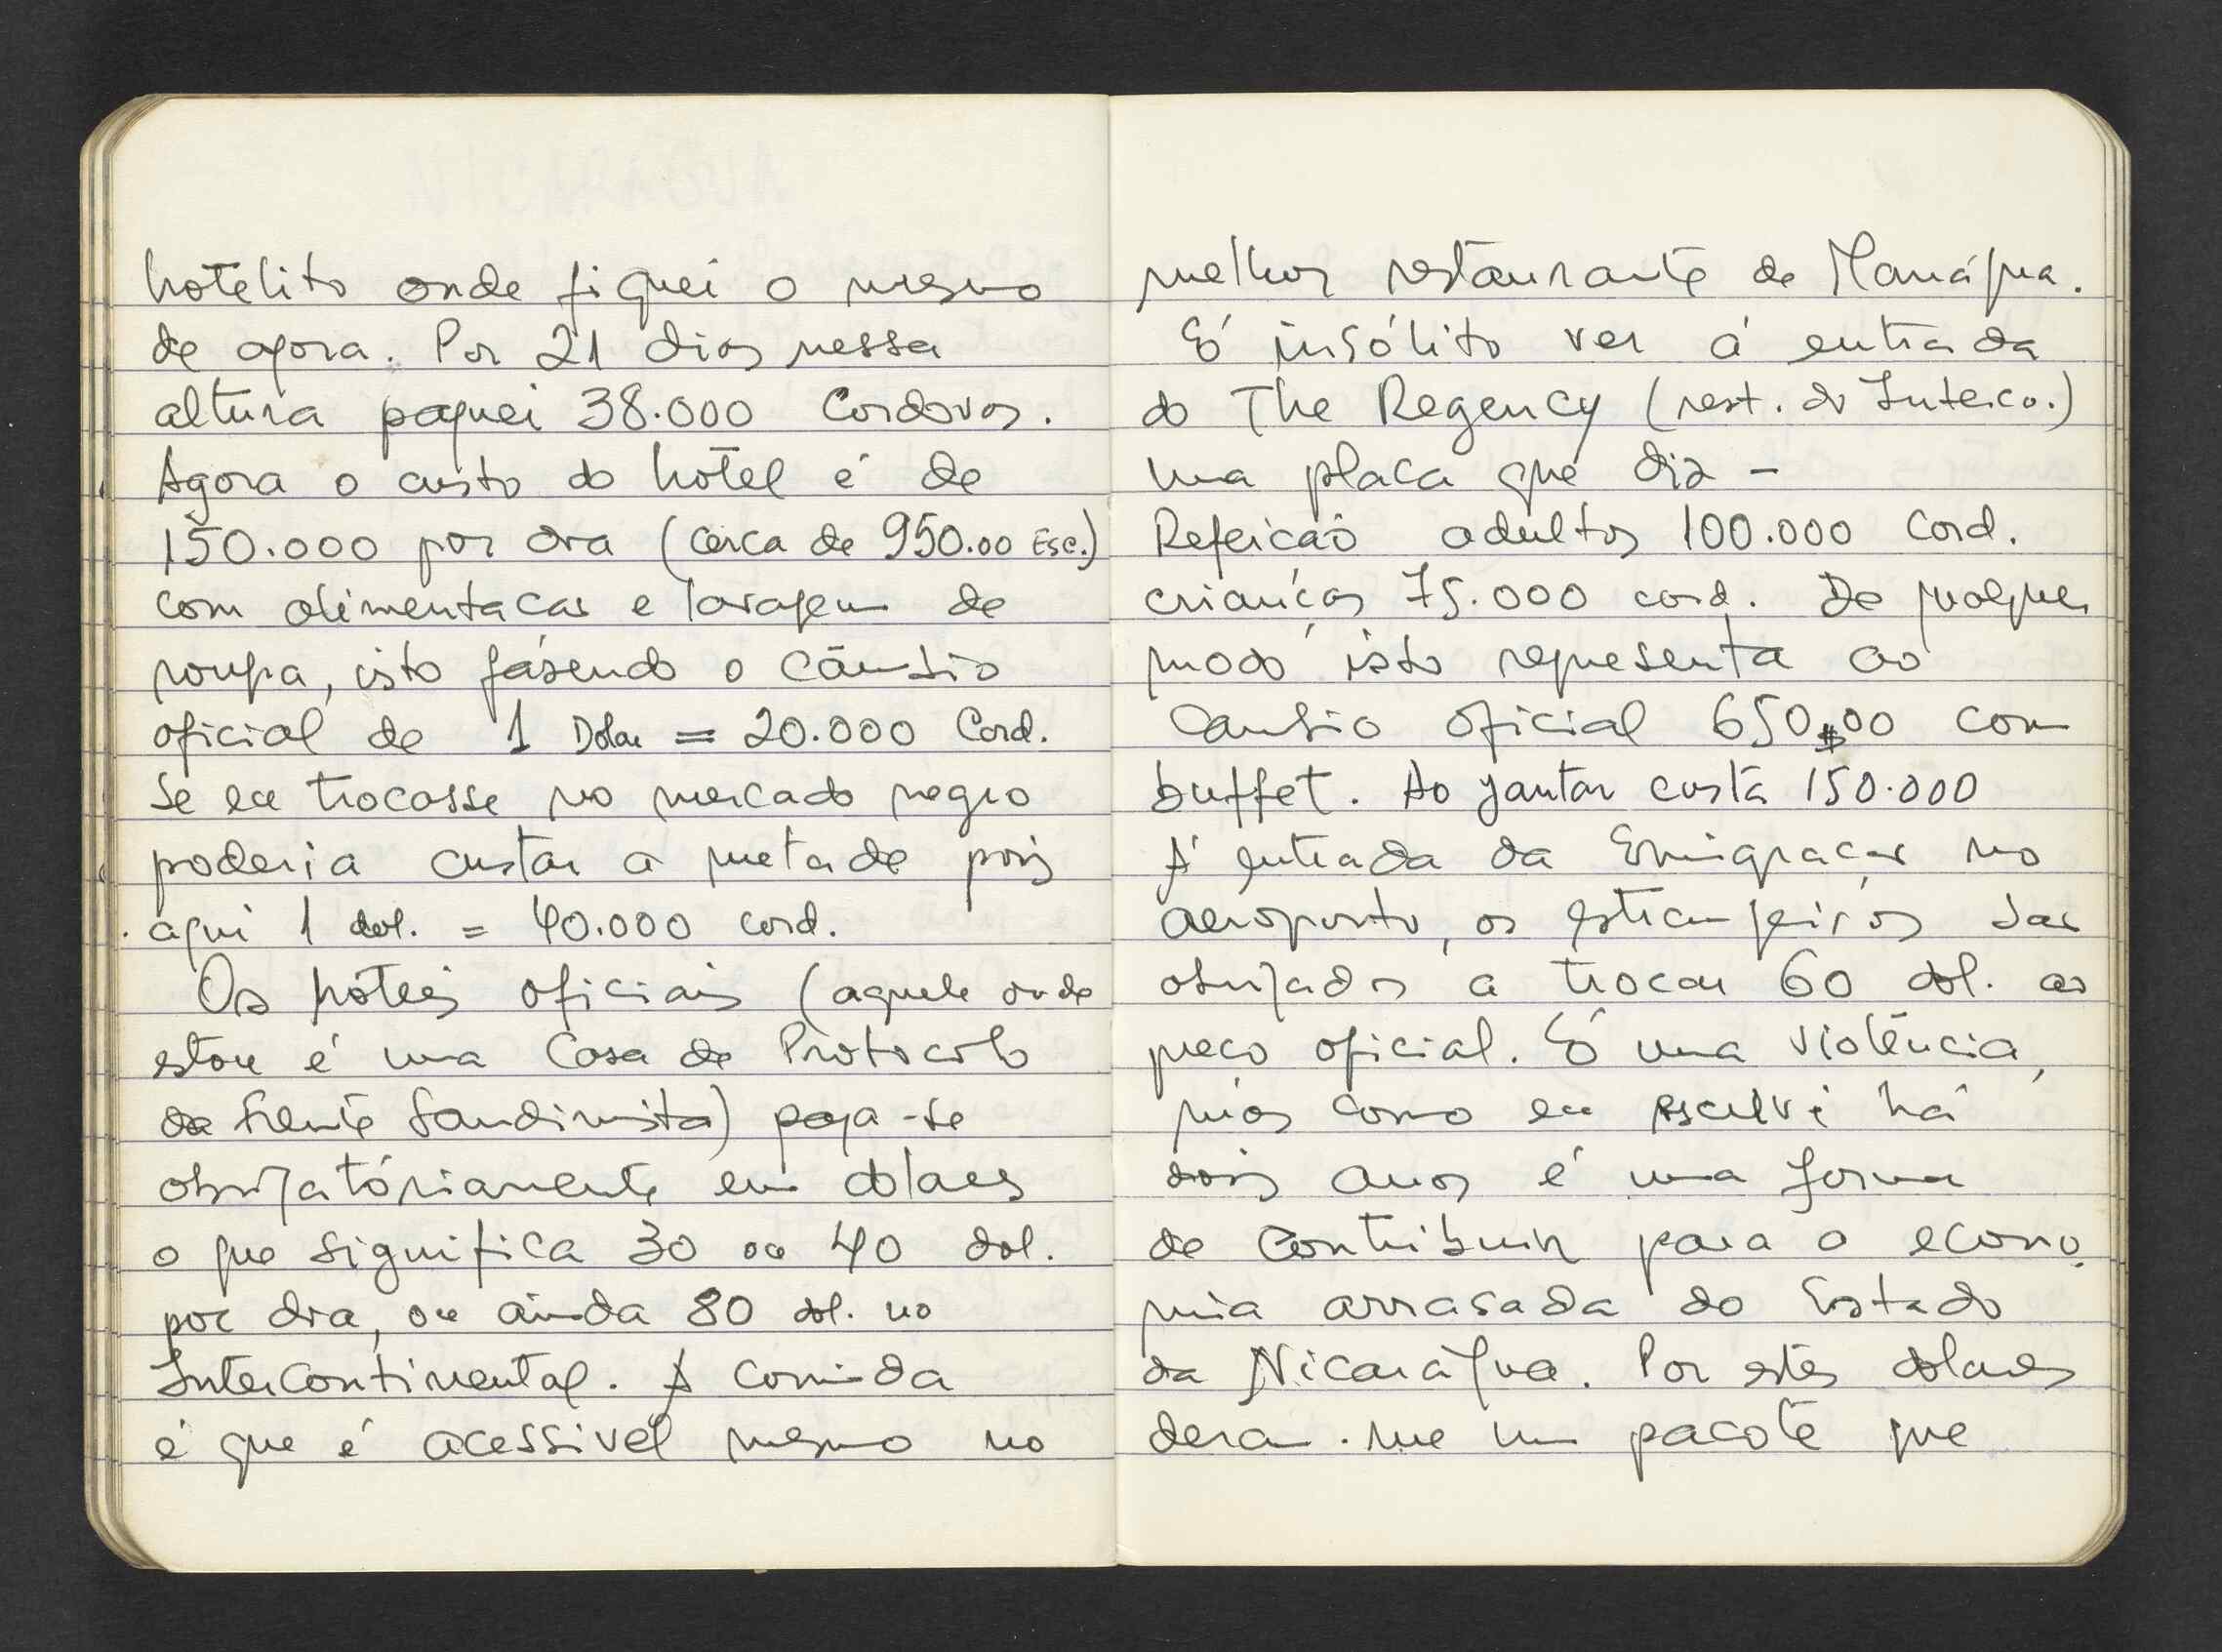 hotelito onde fiquei o mesmo
de agora. Por 21 dias nessa
altura paguei 38.000 Cordovas.
Agora o custo do hotel é de
150.000 por dia (cerca de 950.00 Esc.)
com alimentacao e lavagem de
roupa, isto fasendo o câmbio
oficial de 1 Dolar = 20.000 Cord.
Se eu trocasse no mercado negro
poderia custar a metade pois
aqui 1 dol. = 40.000 cord.
Os hoteis oficiais (aquele onde
estou é uma Casa de Protocolo
da Frente Sandinista) paga-se
obrigatóriamente em dolares
o que significa 30 ou 40 dol.
por dia, ou ainda 80 dol. no
Intercontinental. A comida
é que é acessivel mesmo no
melhor restaurante de Manágua.
É insólito ver á entrada
do The Regency (rest. do Interco.)
uma placa que diz -
Refeicão adultos 100.000 Cord.
crianças 75.000 cord. De qualquer
modo isto representa ao
Cambio oficial 650$00 com
buffet. Ao jantar custa 150.000
Á entrada da Emigração no
aeroporto, os estrangeiros são
obrigados a trocar 60 dol. ao
preço oficial. É uma violência,
mas como eu escrevi há
dois anos é uma forma
de contribuir para a econo-
mia arrasada do Estado
da Nicarágua. Por estes dolares
deram-me um pacote que